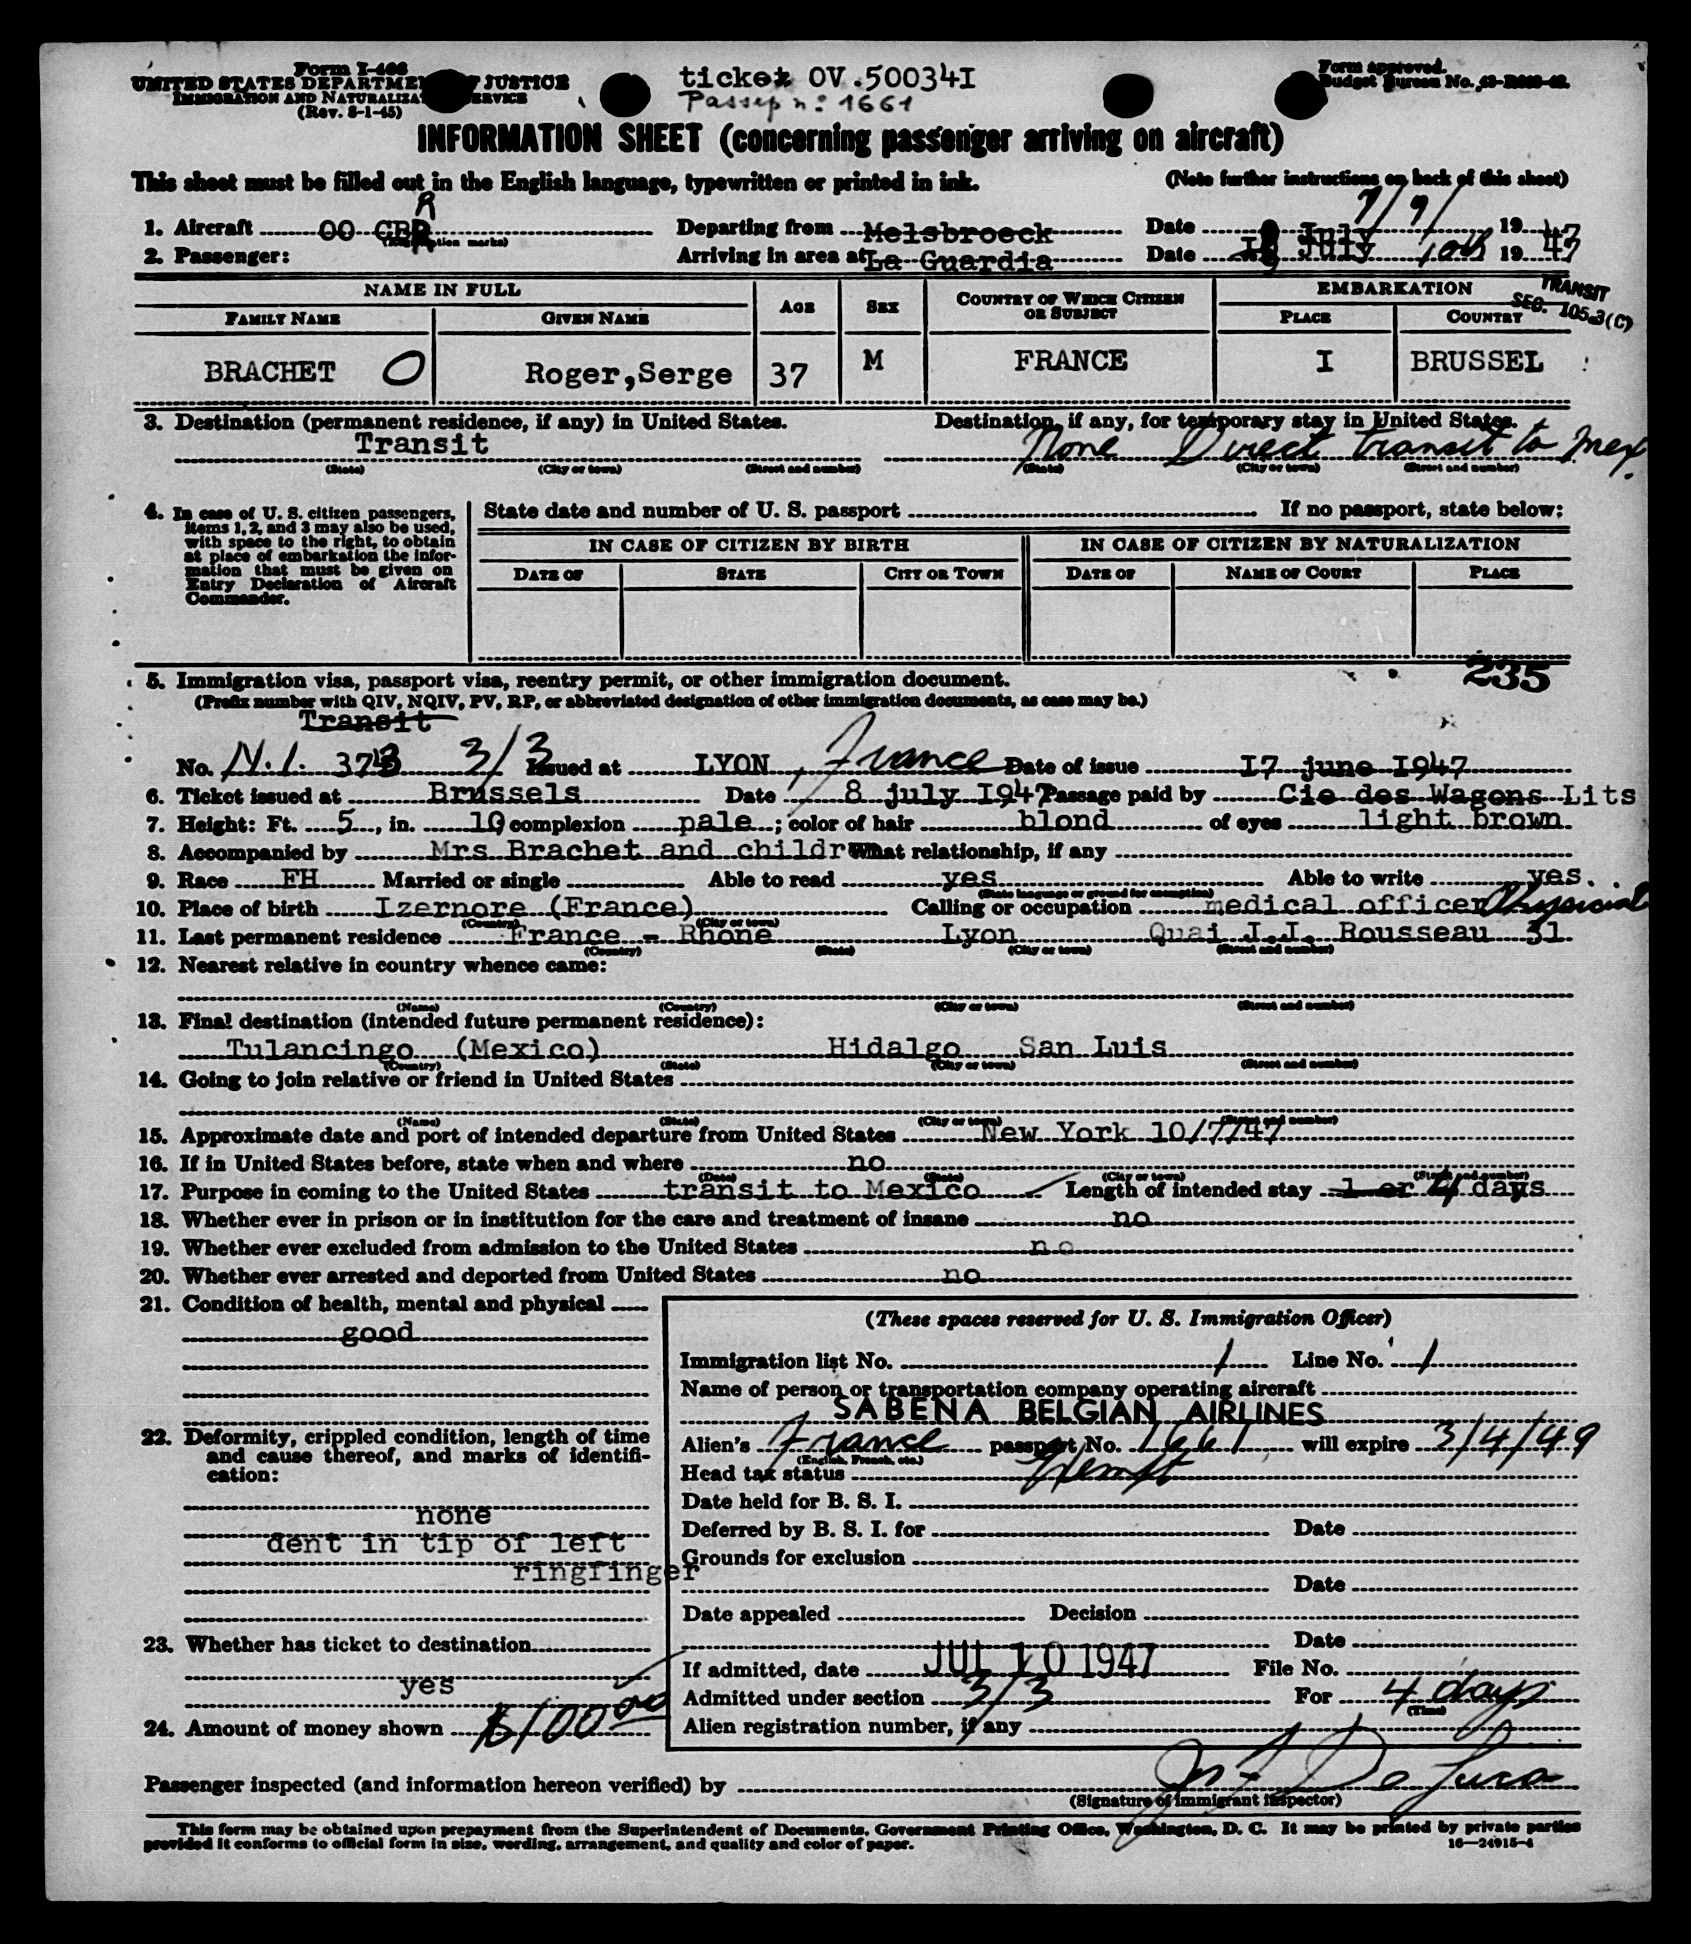 Form I-466
UNITED STATES DEPARTMENT OF JUSTICE
IMMIGRATION AND NATURALIZATION SERVICE
(Rev. 8-1-45)
ticket OV.50034I
Passep n: 1661
Form approved.
Budget Bureau No.
INFORMATION SHEET (concerning passenger arriving on aircraft)
This sheet must be filled out in the English language, typewritten or printed in ink.
(Note further instructions on back of this sheet)
1. Aircraft OO CBR R Departing from Melsbroeck Date July 9/9/ 1947
2. Passenger: Arriving in area at La Guardia Date July 10th 1947
TRANSIT
SEC. 105.3(C)
NAME IN FULL AGE SEX COUNTRY OF WHICH CITIZEN OR SUBJECT EMBARKATION
FAMILY NAME GIVEN NAME PLACE COUNTRY
BRACHET O Roger,Serge 37 M FRANCE I BRUSSEL
3. Destination (permanent residence, if any) in United States. Destination, if any, for temporary stay in United States.
Transit None Direct transit to Mex.
(State) (City or town) (Street and number) (State) (City or town) (Street and number)
4. In case of U. S. citizen passengers, items 1, 2, and 3 may also be used, with space to the right, to obtain at place of embarkation the information that must be given on Entry Declaration of Aircraft Commander.
State date and number of U. S. passport If no passport, state below:
IN CASE OF CITIZEN BY BIRTH IN CASE OF CITIZEN BY NATURALIZATION
DATE OF STATE CITY OR TOWN DATE OF NAME OF COURT PLACE
235
5. Immigration visa, passport visa, reentry permit, or other immigration document.
(Prefix number with QIV, NQIV, PV, RP, or abbreviated designation of other immigration documents, as case may be.)
Transit
No. 3/3 Issued at LYON, France Date of issue 17 june 1947
6. Ticket issued at Brussels Date 8 july I947 Passage paid by Cie des Wagons Lits
7. Height: Ft. 5, in. 10 complexion pale; color of hair blond of eyes light brown
8. Accompanied by Mrs Brachet and children What relationship, if any
9. Race FH Married or single Able to read yes Able to write yes.
(State language or ground for exemption)
10. Place of birth Izernore (France) Calling or occupation medical officer Physician
(Country) (City or town)
11. Last permanent residence France - Rhone Lyon Quai J.J. Rousseau 31
(Country) (State) (City or town) (Street and number)
12. Nearest relative in country whence came:
(Name) (Country) (City or town) (Street and number)
13. Final destination (intended future permanent residence):
Tulancingo (Mexico) Hidalgo San Luis
(Country) (State) (City or town) (Street and number)
14. Going to join relative or friend in United States
(Name) (State) (City or town) (Street and number)
15. Approximate date and port of intended departure from United States New York 10/7/47
16. If in United States before, state when and where no
(Date) (State) (City or town) (Street and number)
17. Purpose in coming to the United States transit to Mexico Length of intended stay 1 or 4 days
18. Whether ever in prison or in institution for the care and treatment of insane no
19. Whether ever excluded from admission to the United States no
20. Whether ever arrested and deported from United States no
21. Condition of health, mental and physical
good
22. Deformity, crippled condition, length of time and cause thereof, and marks of identification:
none
dent in tip of left
ringfinger
23. Whether has ticket to destination
yes
24. Amount of money shown $100 00
(These spaces reserved for U. S. Immigration Officer)
Immigration list No. 1 Line No. 1
Name of person or transportation company operating aircraft
SABENA BELGIAN AIRLINES
Alien's France passport No. 1661 will expire 3/4/49
(English, French, etc.)
Head tax status Exempt
Date held for B. S. I.
Deferred by B. S. I. for Date
Grounds for exclusion
Date
Date appealed Decision
Date
If admitted, date JUL 10 1947 File No.
Admitted under section 3/3 For 4 days
(Time)
Alien registration number, if any
Passenger inspected (and information hereon verified) by
(Signature of immigrant inspector)
This form may be obtained upon prepayment from the Superintendent of Documents, Government Printing Office, Washington, D. C. It may be printed by private parties
provided it conforms to official form in size, wording, arrangement, and quality and color of paper.
16—24915-4